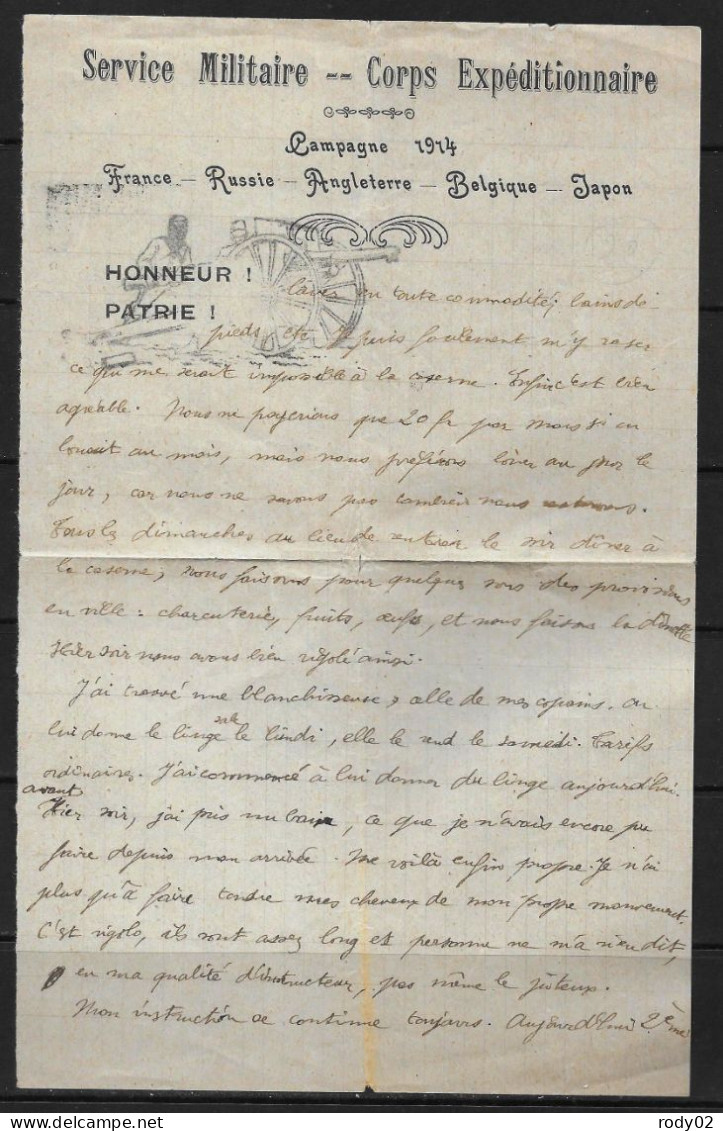 Service Militaire -- Corps Expéditionnaire
Campagne 1914
France — Russie — Angleterre — Belgique — Japon
HONNEUR !
PATRIE !
laver en toute commodité, bains de
pieds etc puis seulement m'y raser
ce qui me serait impossible à la caserne. Enfin c'est bien
agréable. Nous ne payerions que 20 fr par mois si on
louait au mois, mais nous préférons louer au jour le
jour, car nous ne savons pas combien nous
Tous les dimanches au lieu de rentrer le soir dîner à
la caserne, nous faisons pour quelques sous des provisions
en ville : charcuterie, fruits, œufs, et nous faisons la dînette
Hier soir nous avons bien rigolé ainsi.
J'ai trouvé une blanchisseuse, celle de mes copains. On
lui donne le linge sale le lundi, elle le rend le samedi. Tarifs
ordinaires. J'ai commencé à lui donner du linge aujourd'hui.
avant
Hier soir, j'ai pris un bain, ce que je n'avais encore pu
faire depuis mon arrivée. Me voilà enfin propre. Je n'ai
plus qu'à faire tondre mes cheveux de mon propre mouvement.
C'est rigolo, ils sont assez long et personne ne m'a rien dit,
en ma qualité d'instructeur, pas même le juteux.
Mon instruction se continue toujours. Aujourd'hui 2ème
rody02